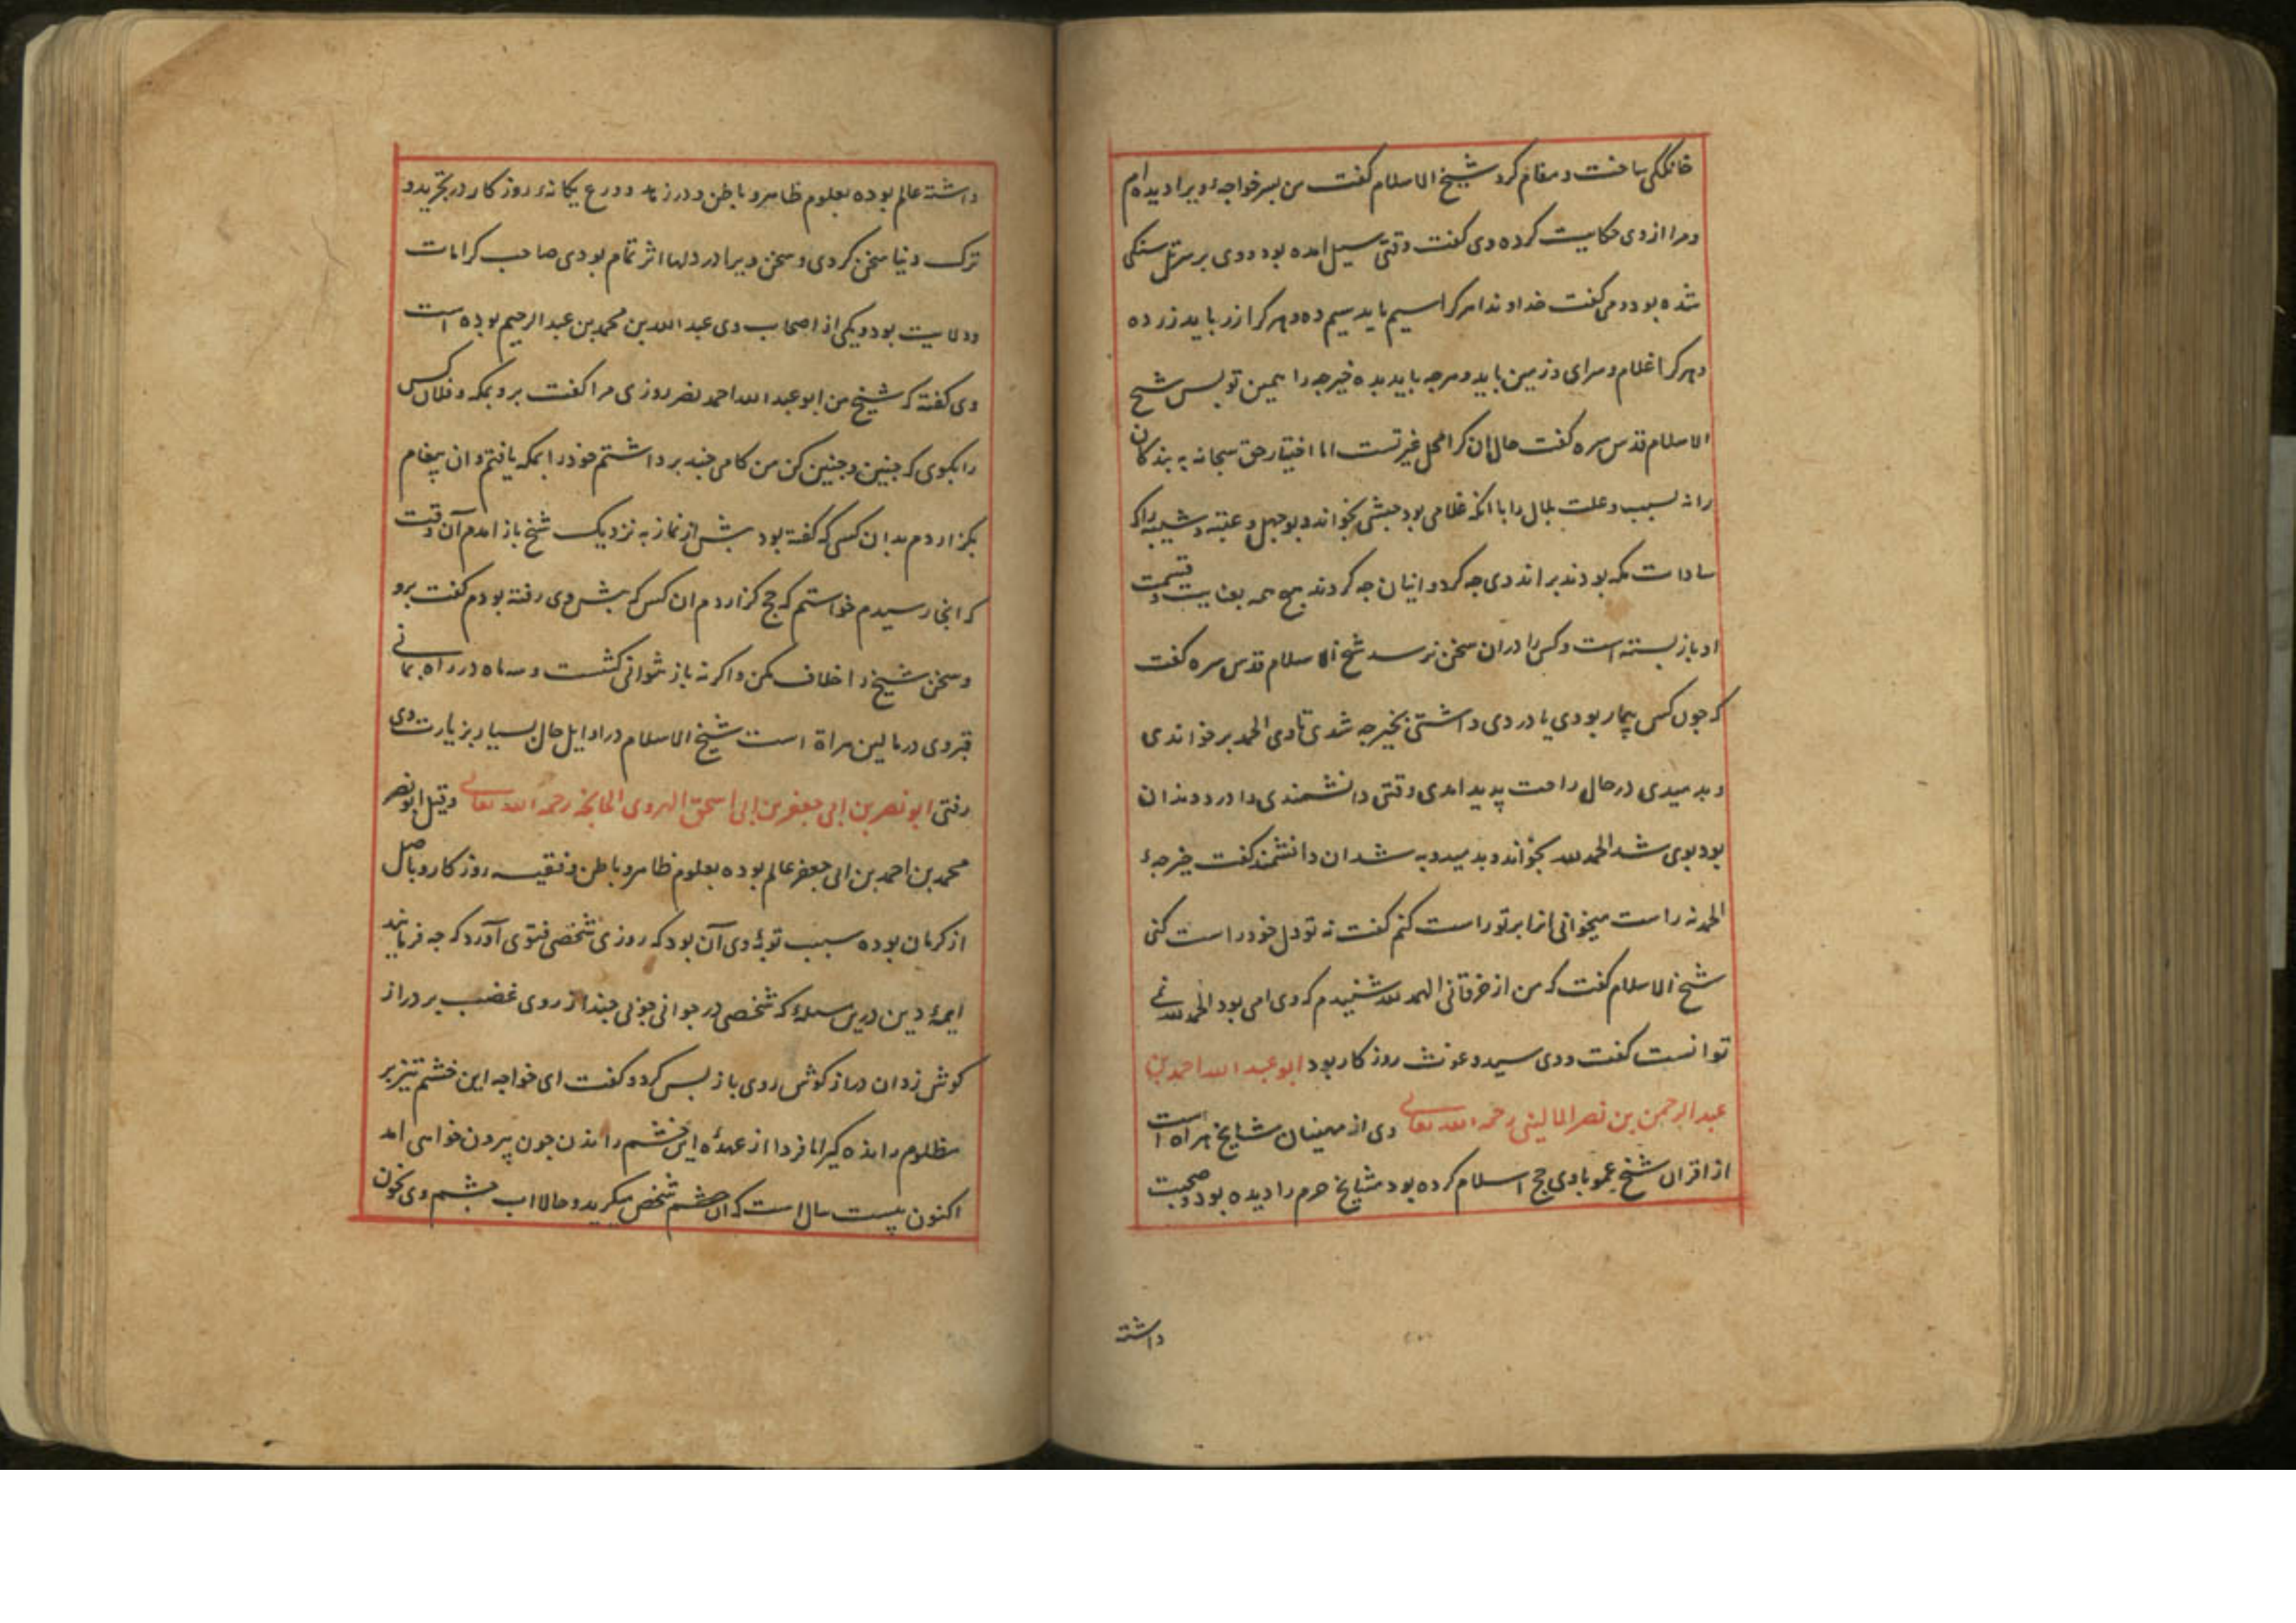 خانگکی ساخت و مقام کرد شیخ الاسلام گفت من پسر خواجهٔ ویرا دیده ام
و مرا از وی حکایت کرده وی گفت وقتی سیل امده بود و وی بر سر تل سنکی
شده بود و می گفت خداوندا هر کرا سیم باید سیم ده و هر کرا زر باید زر ده
و هر کرا غلام و سرای و زمین باید و هرجه باید بده خیرجه را همین تو بس شیخ
الاسلام قدس سره گفت حال ان کرا محل غیرتست اما اختیار حق سبحانه به بندکان
را نه لسبب و علت بلال را با انکه غلامی بود حبشی بخواند و بوجهل و عتبه و شیبه را که
سادات مکه بودند براند وی جه کرد و اینان جه کردند هیچ همه بعنایت و قسمت
او باز بسته است و کس را دران سخن نرسد شیخ الاسلام قدس سره گفت
که جون کسی بیمار بودی یا دردی داشتی بخیرجه شدی تا وی الحمد بر خواندی
و بدمیدی در حال راحت پدید امدی وقتی دانشمندی را درد دندان
بود بوی شد الحمد لله بخواند و بدمید و به شد ان دانشمند گفت خیرجهٔ
الحمد نه راست میخوانی انرا بر تو راست کنم گفت نه تو دل خود راست کنی
شیخ الاسلام گفت که من از خرقانی الحمد لله شنیدم که وی امی بود الحمد لله نمی
توانست گفت و وی سید و غوث روزکار بود ابو عبد الله احمد بن
عبد الرحمن بن نصر المالینی رحمه الله تعالی وی از مهینان مشایخ هراة است
از اقران شیخ عمو با وی حج اسلام کرده بود مشایخ حرم را دیده بود و صحبت
داشته
داشته عالم بوده بعلوم ظاهر و باطن و در زهد و ورع یکانهٔ روزکار در تجرید و
ترک دنیا سخن کردی و سخن ویرا در دلها اثر تمام بودی صاحب کرامات
و ولایت بود و یکی از اصحاب وی عبد الله بن محمد بن عبد الرحیم بوده است
وی گفته که شیخ من ابو عبد الله احمد نصر روزی مرا گفت برو بمکه و فلان کس
را بکوی که جنین و جنین کن من کامی جند بر داشتم خود را بمکه یافتم و ان پیغام
بکزاردم بدان کس که گفته بود پیش از نماز به نزدیک شیخ باز امدم آن وقت
که انجا رسیدم خواستم که حج کزاردم ان کس که پیش وی رفته بودم گفت برو
و سخن شیخ را خلاف مکن و اکر نه باز نتوانی گشت و سه ماه در راه بمانی
قبر وی در مالین هراة است شیخ الاسلام در اوایل حال بسیار بزیارت وی
رفتی ابو نصر بن ابی جعفر بن ابی اسحق الهروی الخانجه رحمه الله تعالی و قیل ابو نصر
محمد بن احمد بن ابی جعفر عالم بوده بعلوم ظاهر و باطن و فقیه روزکار و باصل
از کرمان بوده سبب توبهٔ وی آن بود که روزی شخصی فتوی آورد که جه فرمایند
ایمهٔ دین درین مسلهٔ که شخصی در جوانی جوبی جند از روی غضب بر دراز
کوش زد ان دراز کوش روی باز پس کرد و گفت ای خواجه این خشم تیز بر
مظلوم رانده کیر اما فردا از عهدهٔ این خشم راندن جون بیرون خواهی امد
اکنون بیست سال است که ان شخص میکرید و حالا اب چشم وی بخون